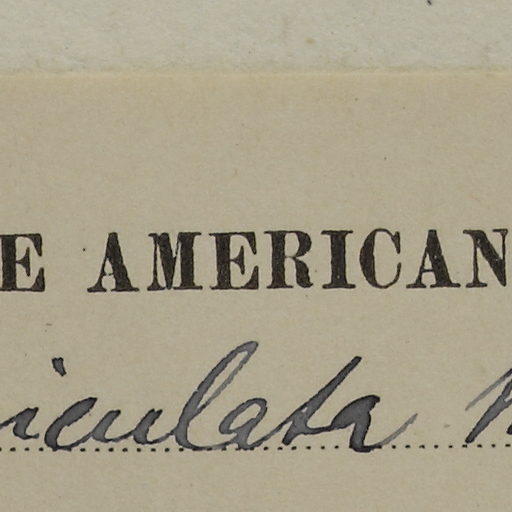 E AMERICAN
iculata